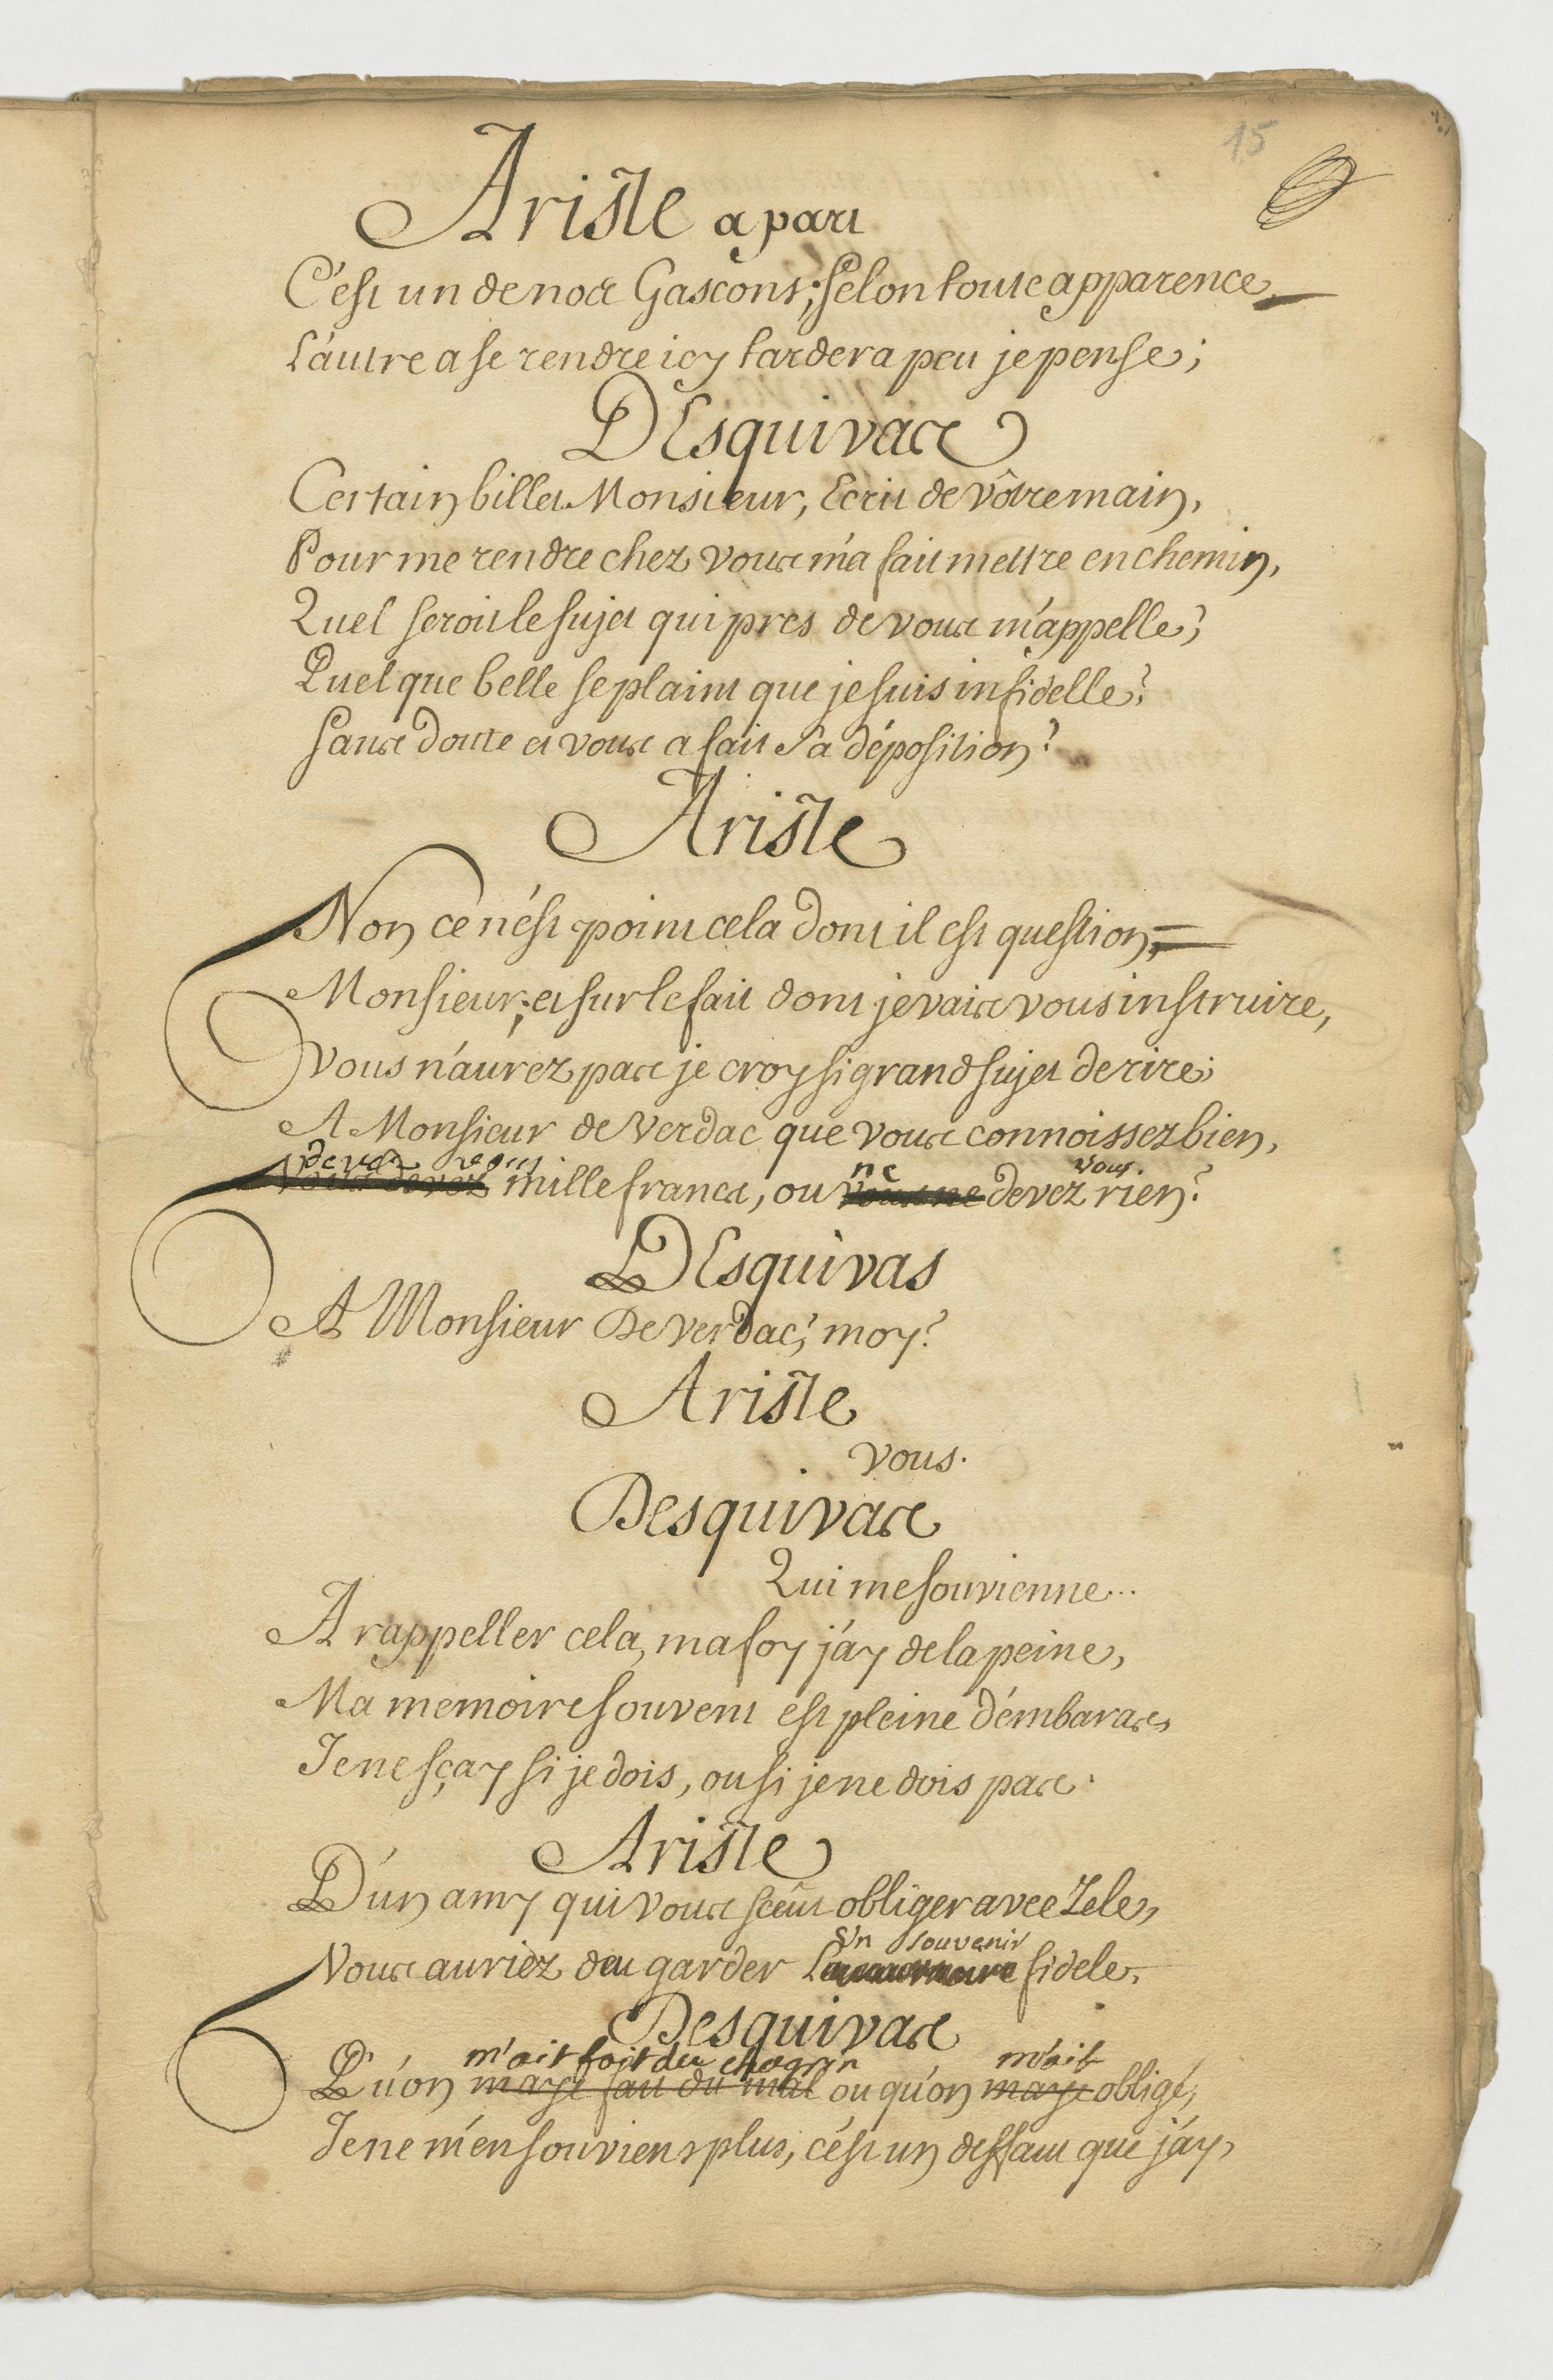 15
Ariste a part
C'est un de nos Gascons; selon toute apparence,
L'autre a se rendre icy tardera peu je pense;
DEsquivas
Certain billet Monsieur, Ecrit de vôtre main,
Pour me rendre chez vous m'a fait mettre en chemin,
Quel seroit le sujet qui pres de vous m'appelle?
Quelque belle se plaint que je suis infidelle?
Sans doute et vous a fait sa déposition?
Ariste
Non ce n'est point cela dont il est question,
Monsieur; et sur le fait dont je vais vous instruire,
Vous n'aurez pas je croy si grand sujet de rire;
A Monsieur de Verdac que vous connoissez bien,
devez vous ne vous.
Vous devez mille francs, ou vous ne devez rien?
DEsquivas
A Monsieur De Verdac, moy?
Ariste
Vous.
Desquivas
Qui me souvienne...
A rappeller cela, ma foy j'ay de la peine,
Ma memoire souvent est pleine d'embaras,
Je ne sçay si je dois, ou si je ne dois pas.
Ariste
D'un amy qui vous sceut obliger avec Zele,
Un souvenir
Vous auriez deu garder fidele.
Desquivas
m'ait fait du chagrin m'ait
Qu'on maye fait du mal ou qu'on maye obligé,
Je ne m'en souviens plus, c'est un deffaut que j'ay,